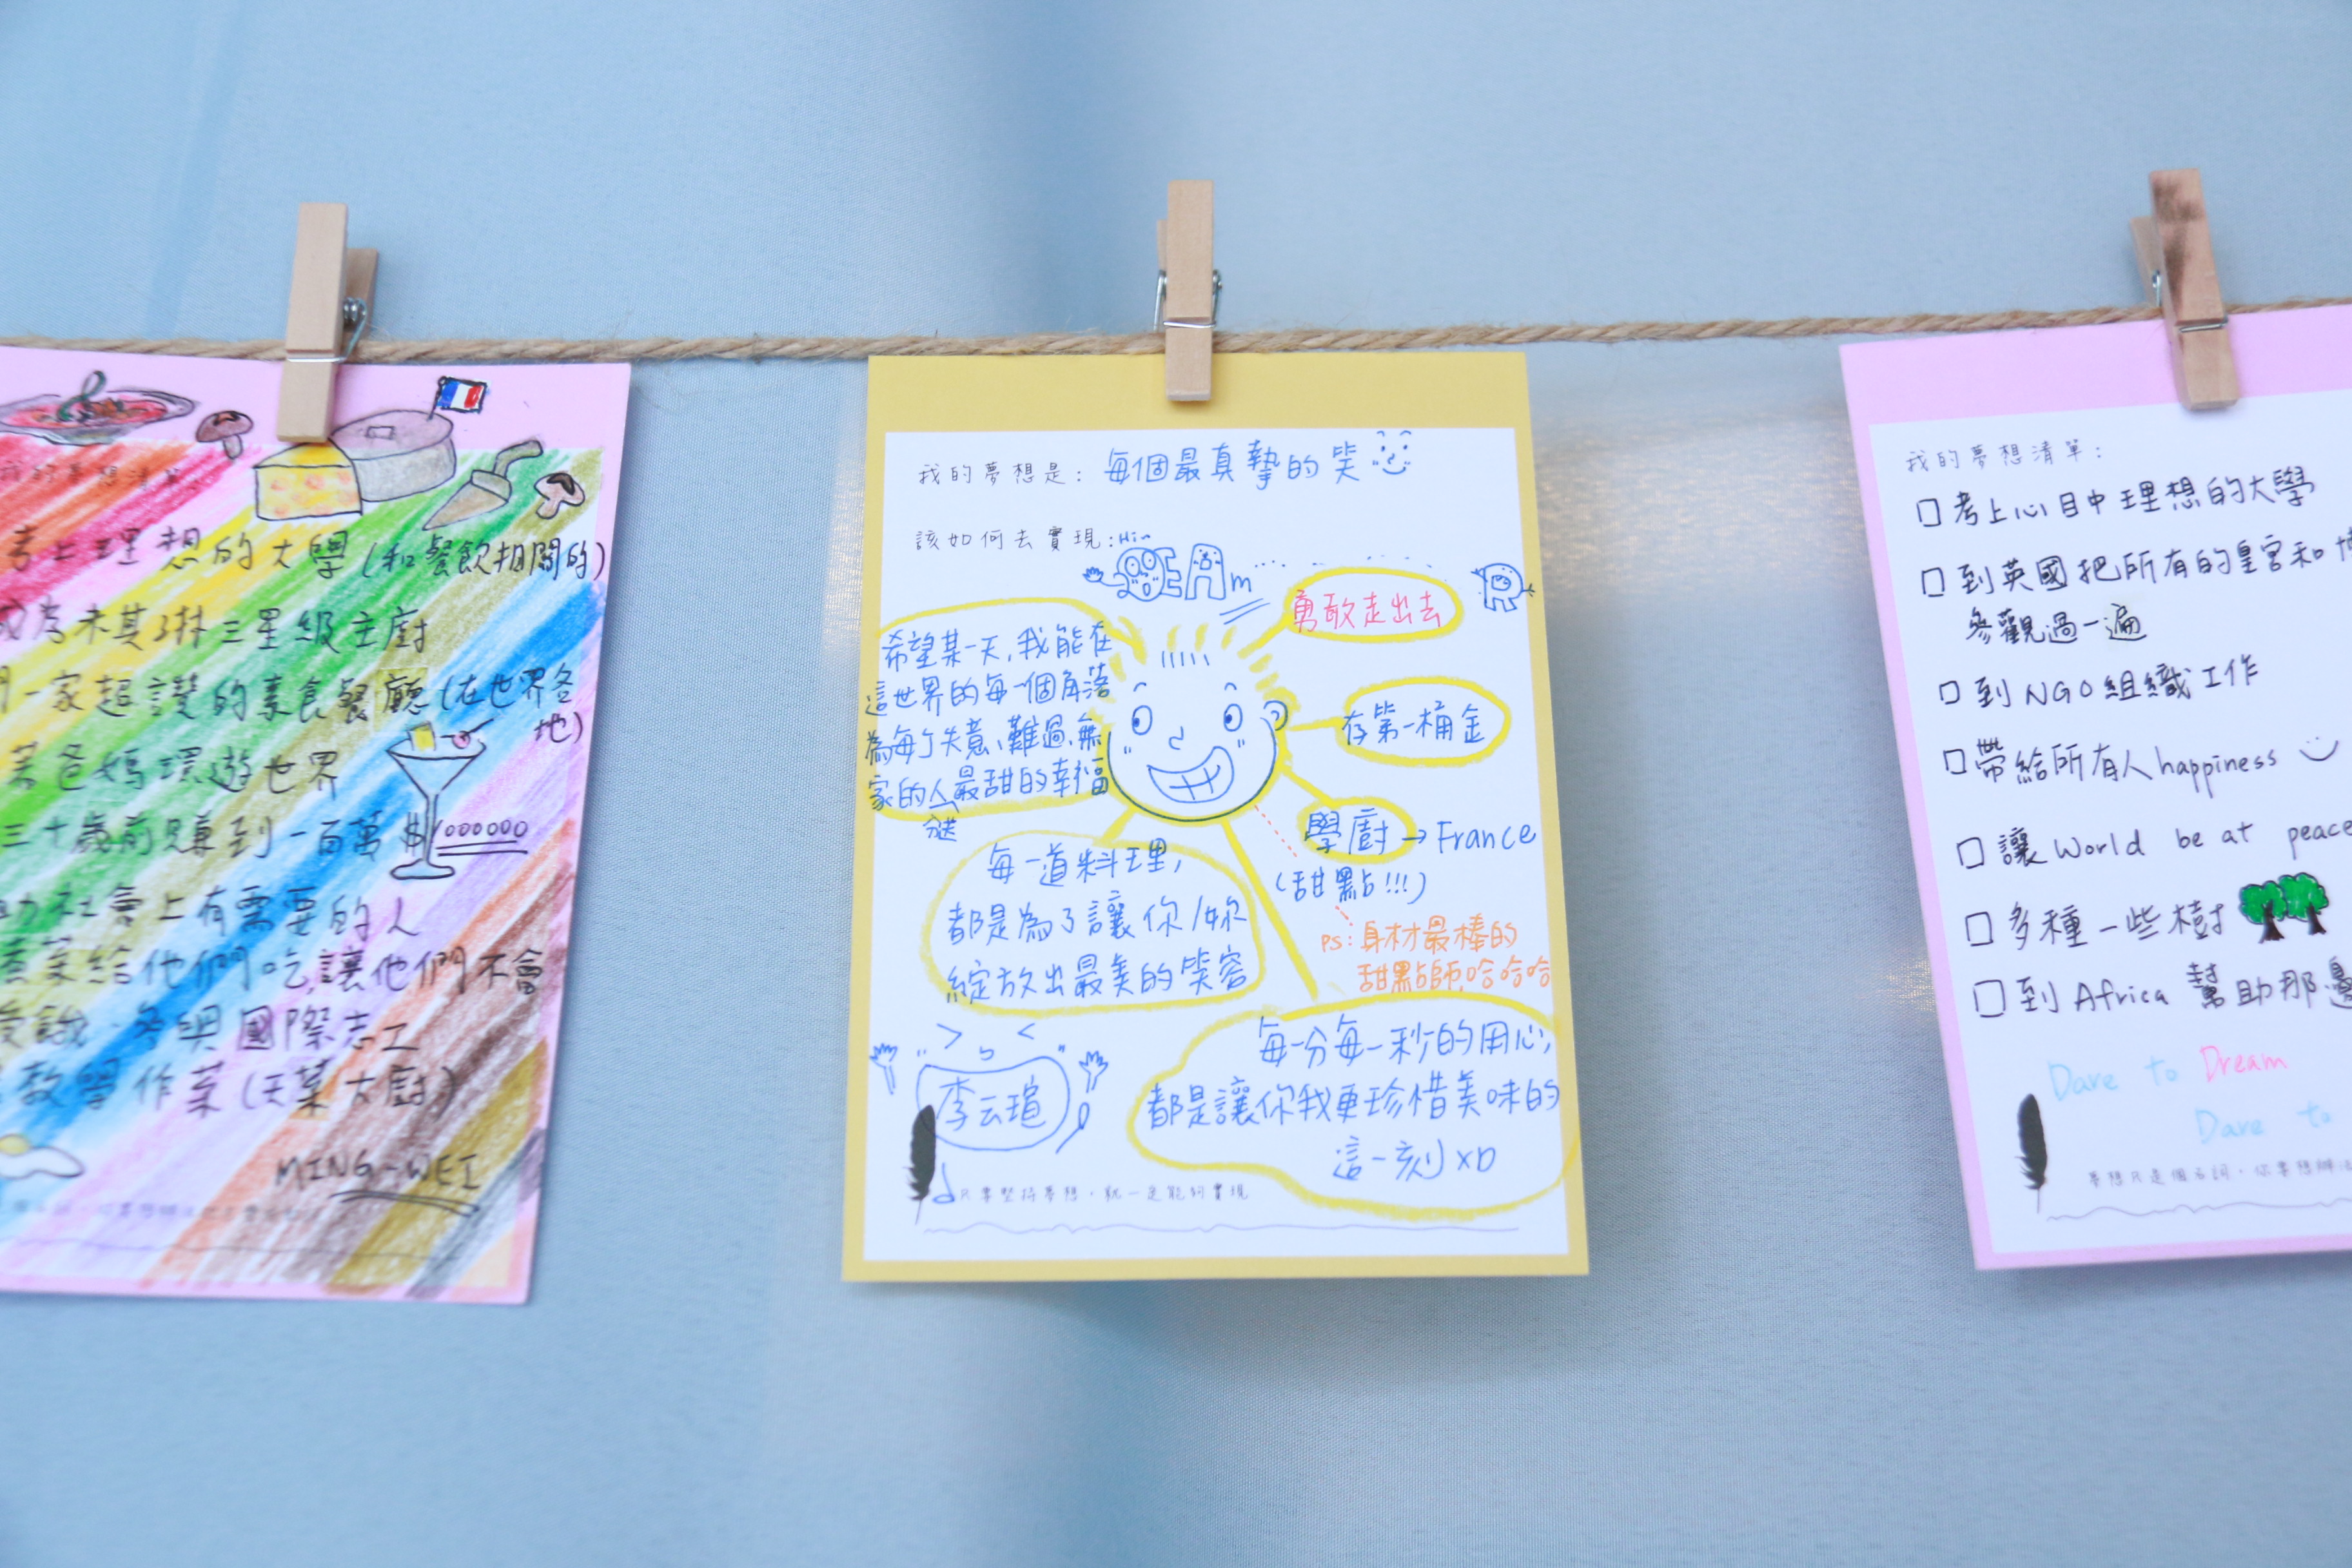 我的夢想清單:
考上理想的大學(和餐飲相關的)
成為米其琳三星級主廚
一家超讚的素食餐廳(在世界各地)
爸媽環遊世界
三十歲前賺到一百萬 $1000000
助社會上有需要的人
煮菜給他們吃,讓他們不會
參與國際志工
教學作菜(天菜大廚)
MING-WEI
我的夢想是: 每個最真摯的笑
該如何去實現:
Hi~
DREAm
勇敢走出去
希望某一天,我能在
這世界的每一個角落
為每個失意、難過、無
家的人最甜的幸福
分送
存第一桶金
學廚→France
(甜點!!!)
PS:身材最棒的
甜點師,哈哈哈
每一道料理,
都是為了讓你/妳
綻放出最美的笑容
每一分每一秒的用心,
都是讓你我更珍惜美味的
這一刻XD
李云瑄
只要堅持夢想,就一定能夠實現
我的夢想清單:
□考上心目中理想的大學
□到英國把所有的皇宮和
參觀過一遍
□到NGO組織工作
□帶給所有人happiness
□讓World be at peace
□多種一些樹
□到Africa幫助那邊
Dare to Dream
Dare to
夢想只是個名詞,你要想辦法